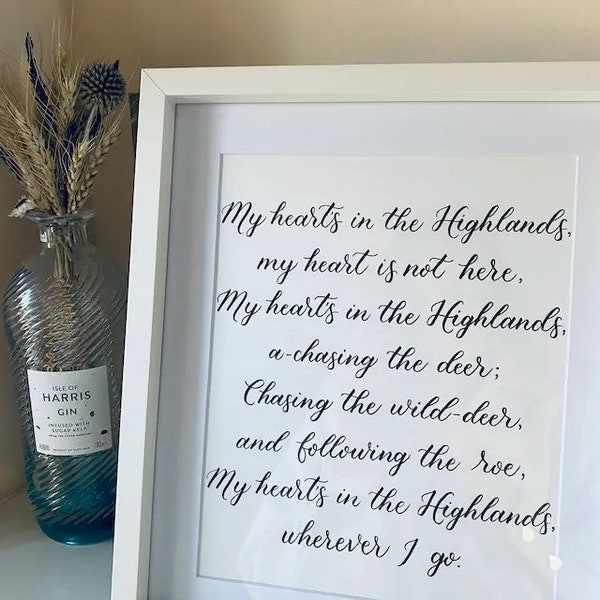 My heart's in the Highlands,
my heart is not here,
My heart's in the Highlands,
a-chasing the deer;
Chasing the wild-deer,
and following the roe,
My heart's in the Highlands,
wherever I go.
ISLE OF
HARRIS
GIN
INFUSED WITH
SUGAR KELP
PRODUCT OF SCOTLAND